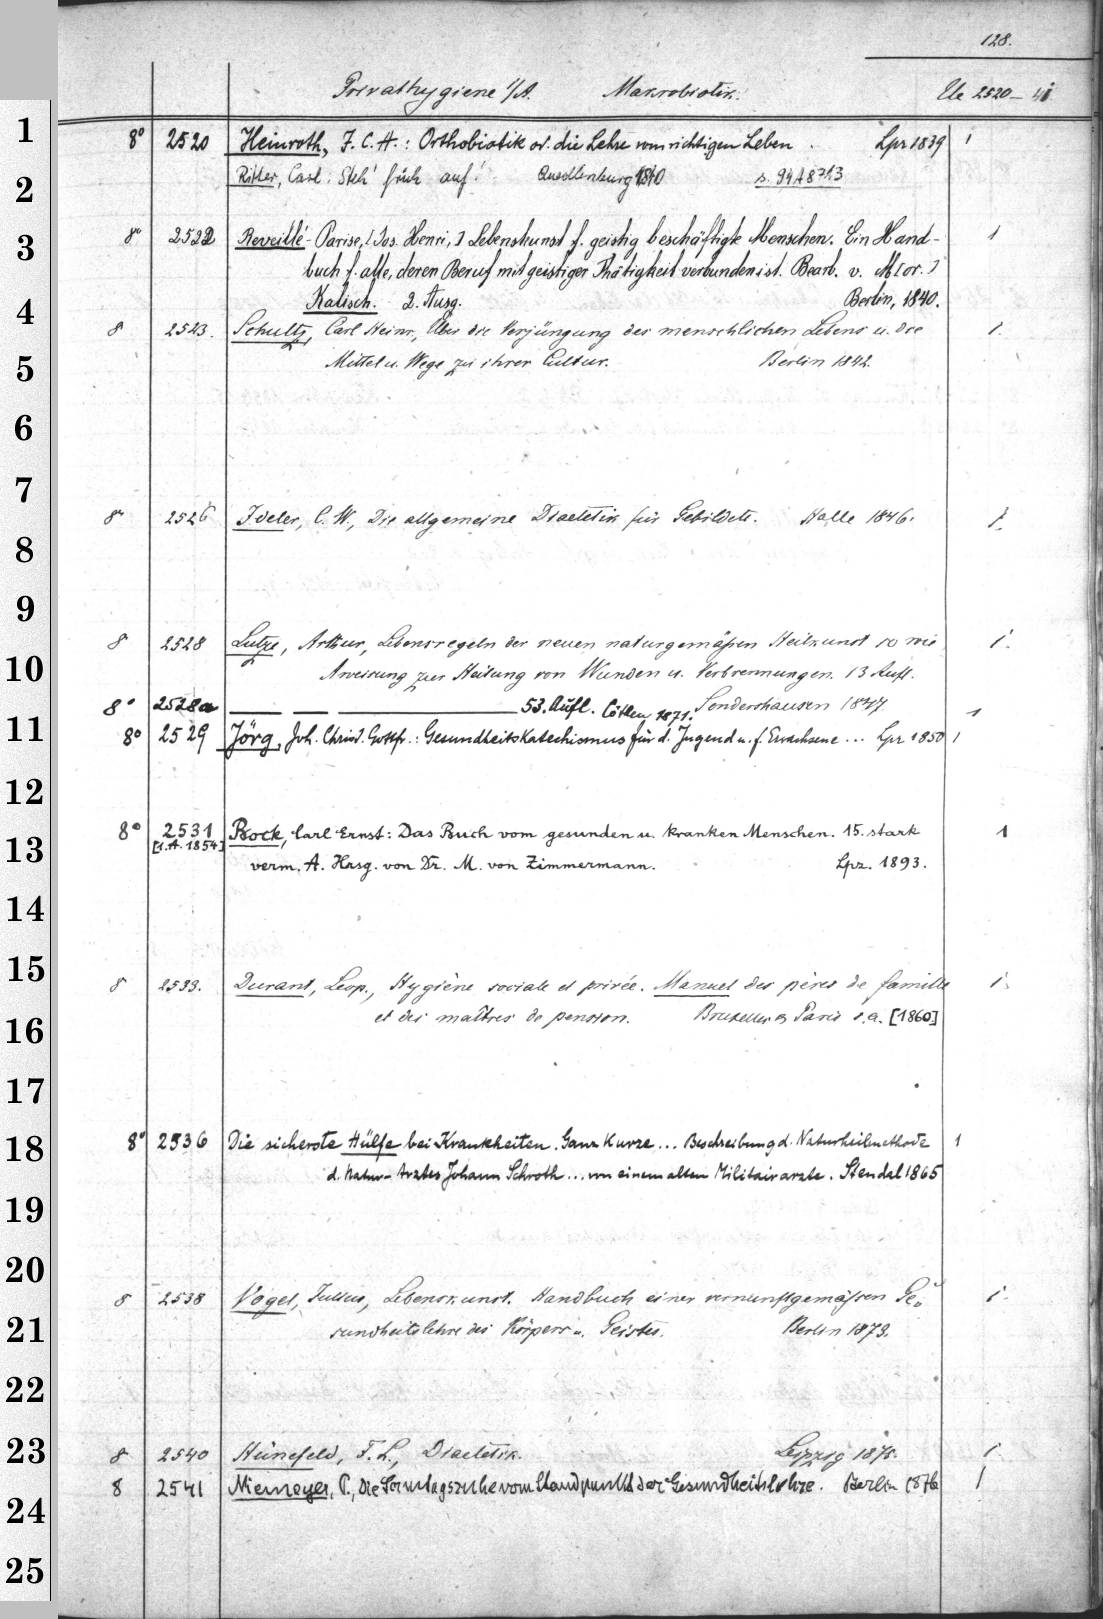 128.
Privathygiene i/A. Makrobiotik. Ue 2520-41
1
8° 2520 Heinroth, J. C. A.: Orthobiotik od. die Lehre vom richtigen Leben. Lpz 1839 1
2
Ritter, Carl: Steh' früh auf! Quedlenburg 1840 s. 94 A 8713
3
8° 2522 Reveillé-Parise, [Jos. Henri,] Lebenskunst f. geistig beschäftigte Menschen. Ein Hand- 1
buch f. alle, deren Beruf mit geistiger Thätigkeit verbunden ist. Bearb. v. M[or.]
4
Kalisch. 2. Ausg. Berlin, 1840.
8 2523. Schultz, Carl Heinr., Über die Verjüngung des menschlichen Lebens u. die 1.
5
Mittel u. Wege zu ihrer Cultur. Berlin 1842.
6
7
8° 2526 Ideler, C. W., Die allgemeine Diaetetik für Gebildete. Halle 1846. 1.
8
9
8 2528 Lutze, Arthur, Lebensregeln der neuen naturgemäßen Heilkunst so wie 1.
10
Anweisung zur Heilung von Wunden u. Verbrennungen. 13 Aufl.
Sondershausen 1847.
8° 2528a — — — 53. Aufl. Cöthen 1871. 1
11
8° 2529 Jörg, Joh. Christ. Gottfr.: Gesundheitskatechismus für d. Jugend u. f. Erwachsene ... Lpz 1850 1
12
8° 2531 Bock, Carl Ernst: Das Buch vom gesunden u. kranken Menschen. 15. stark 1
[1. A. 1854]
13
verm. A. Hrsg. von Dr. M. von Zimmermann. Lpz. 1893.
14
15
8 2533. Durant, Leop., Hygiène sociale et privée. Manuel des pères de famille 1.
16
et des maîtres de pension. Bruxelles & Paris s.a. [1860]
17
18
8° 2536 Die sicherste Hülfe bei Krankheiten. Ganz kurze ... Beschreibung d. Naturheilmethode 1
d. Natur-Arztes Johann Schroth ... von einem alten Militairarzte. Stendal 1865
19
20
8 2538 Vogel, Julius, Lebenskunst. Handbuch einer vernunftgemässen Ge- 1.
21
sundheitslehre des Körpers u. Geistes. Berlin 1873.
22
23
8 2540 Hünefeld, F. L., Diaetetik. Leipzig 1875. 1.
8 2541 Niemeyer, P., Die Sonntagsruhe vom Standpunkt der Gesundheitslehre. Berlin 1876 1
24
25